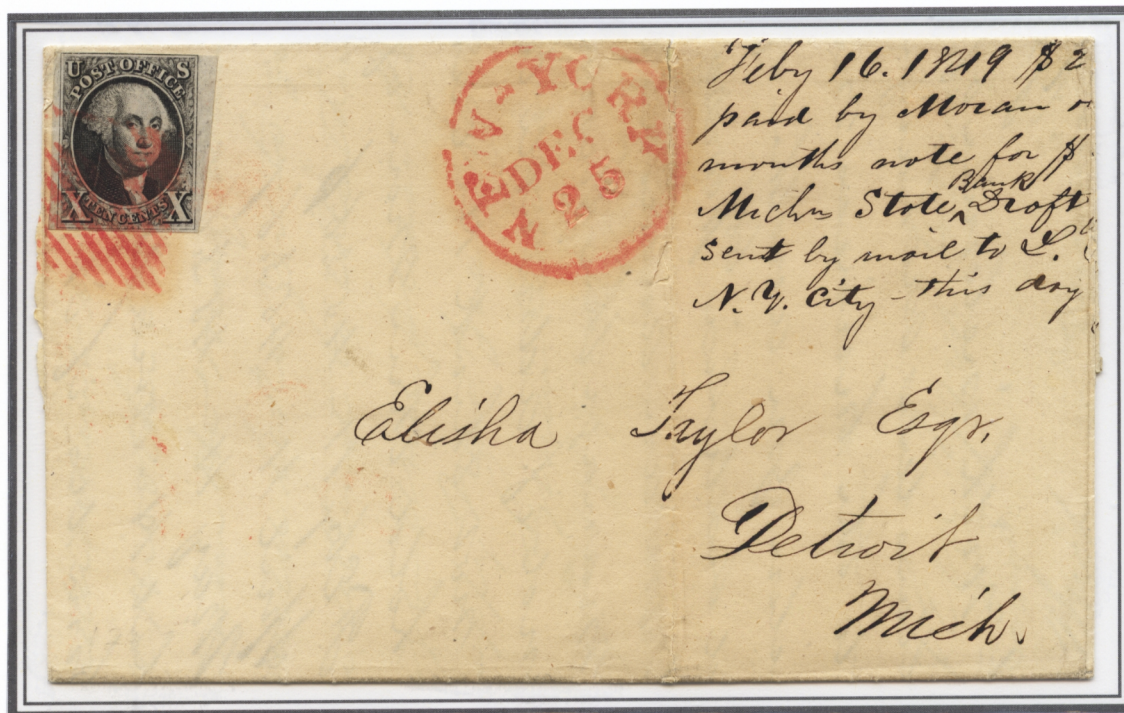 U S
POST OFFICE
X TEN CENTS X
NEW-YORK
DEC
25
Feby 16. 1849 $2
paid by Moran
months note for $
Bank
Michn State ^ Draft
sent by mail to L.
N.Y. City - this day
Elisha Taylor Esqr.
Detroit
Mich.